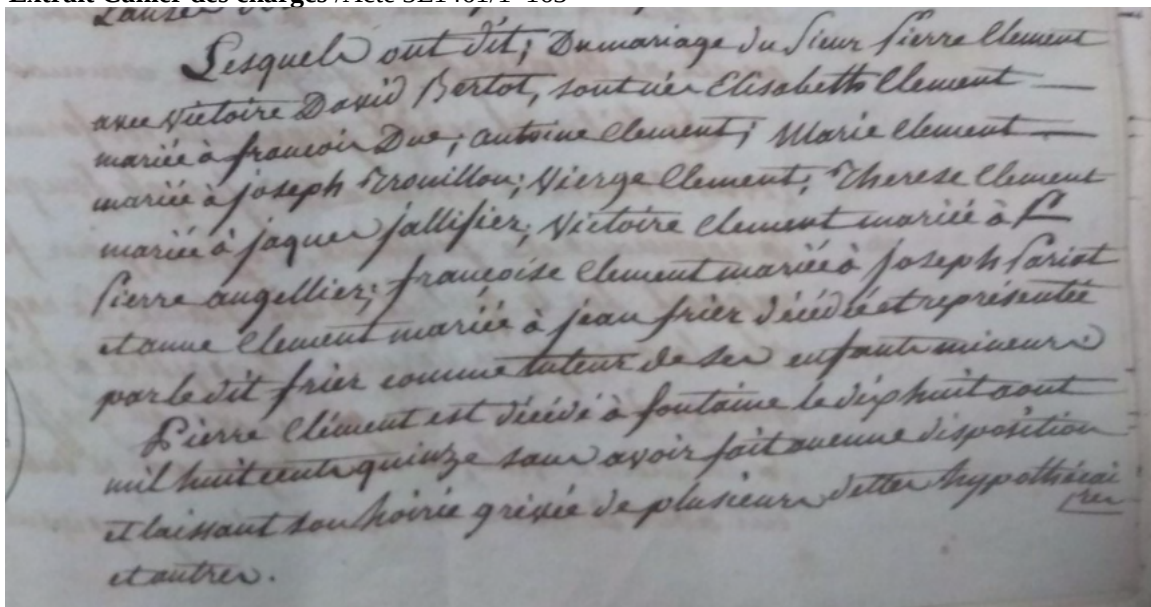 Extrait Cahier des charges /Acte 3E1461/1- 163
Lesquels ont dit; Du mariage du Sieur Pierre Clement
avec Victoire David Bertot, sont nés Elisabeth Clement —
mariée à françois Duc; antoine Clement; Marie Clement —
mariée à joseph Trouillon; Vierge Clement; Therese Clement
mariée à jaques jallifier; Victoire Clement mariée à
Pierre augellier; françoise Clement mariée à joseph Pariat
et anne Clement mariée à jean frier décédée et représentée
par le dit frier comme tuteur de ses enfants mineurs
Pierre Clément est décédé à fontaine le dix huit aout
mil huit cents quinze sans avoir fait aucune disposition
et laissant son hoirie grévée de plusieurs dettes hypothécai
res
et autres.